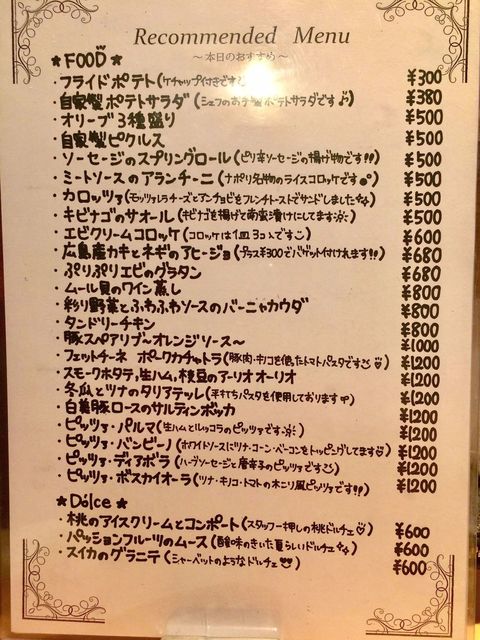 Recommended Menu
～本日のおすすめ～
★FOOD★
・フライドポテト(ケチャップ付きです ¥300
・自家製ポテトサラダ(シェフのお手製ポテトサラダです♪) ¥380
・オリーブ3種盛り ¥500
・自家製ピクルス ¥500
・ソーセージのスプリングロール(ピリ辛ソーセージの揚げ物です!!) ¥500
・ミートソースのアランチーニ(ナポリ名物のライスコロッケです) ¥500
・カロッツァ(モッツァレラチーズとアンチョビをフレンチトーストでサンドしました) ¥500
・キビナゴのサオール(キビナゴを揚げて南蛮漬けにしてます) ¥500
・エビクリームコロッケ(コロッケは1皿3コ入です) ¥600
・広島産カキとネギのアヒージョ(プラス¥300でバゲット付けれます!!) ¥680
・ぷりぷりエビのグラタン ¥680
・ムール貝のワイン蒸し ¥800
・彩り野菜とふわふわソースのバーニャカウダ ¥800
・タンドリーチキン ¥800
・豚スペアリブ～オレンジソース～ ¥1000
・フェットチーネ ポークカチャトラ(豚肉・キノコを使ったトマトパスタです) ¥1,200
・スモークホタテ,生ハム,枝豆のアーリオオーリオ ¥1,200
・冬瓜とツナのタリアテッレ(平打ちパスタを使用しております) ¥1,200
・白美豚ロースのサルティンボッカ ¥1,200
・ピッツァ・パルマ(生ハムとルッコラのピッツァです) ¥1,200
・ピッツァ・バンビーノ(ホワイトソースにツナ・コーン・ベーコンをトッピングしてます) ¥1,200
・ピッツァ・ディアボラ(ハーブソーセージと唐辛子のピッツァです) ¥1,200
・ピッツァ・ボスカイオーラ(ツナ・キノコ・トマトの木こり風ピッツァです!!) ¥1,200
★Dólce★
・桃のアイスクリームとコンポート(スタッフ一押しの桃ドルチェ♡) ¥600
・パッションフルーツのムース(酸味のきいた夏らしいドルチェ) ¥600
・スイカのグラニテ(シャーベットのようなドルチェ) ¥600